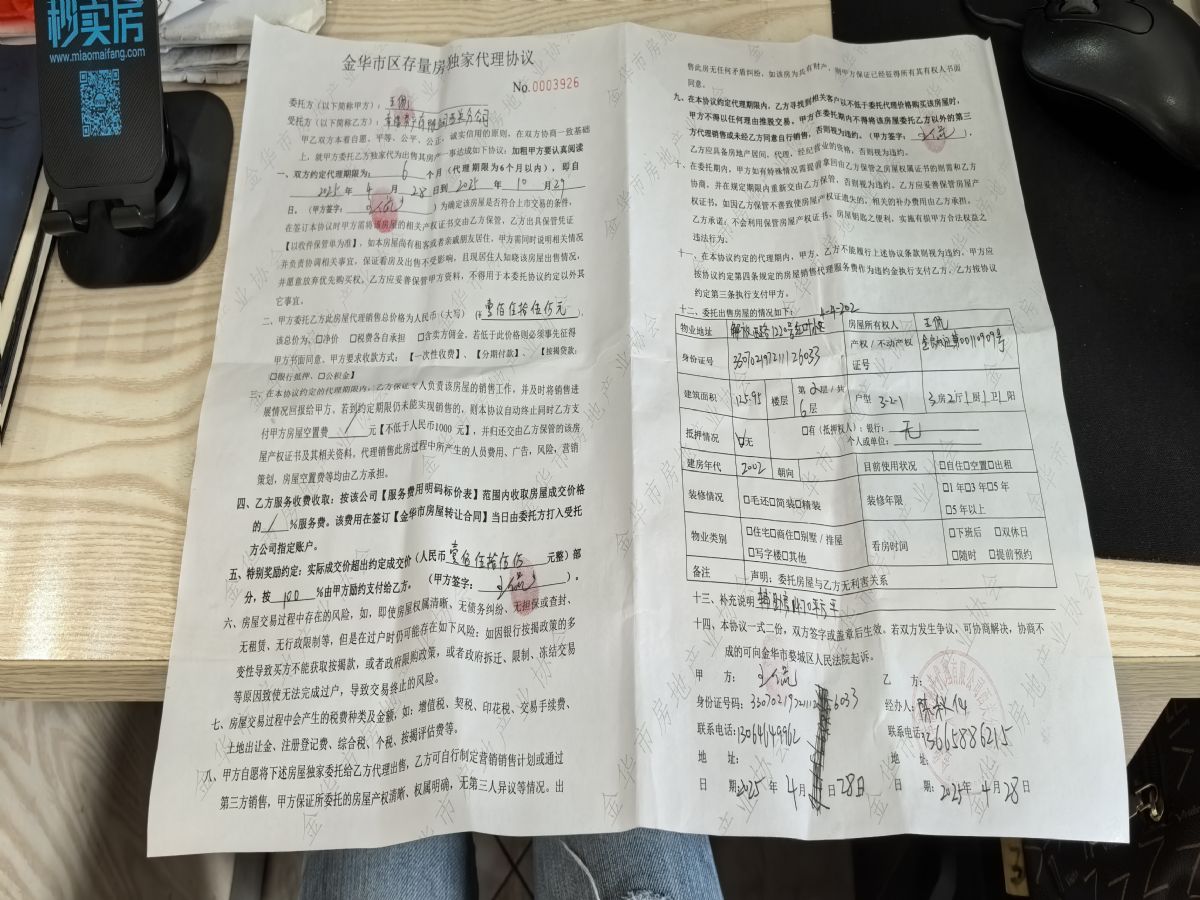 秒卖房
www.miaomaifang.com
金华市区存量房独家代理协议
No.0003926
委托方（以下简称甲方）：
受托方（以下简称乙方）：
甲乙双方本着自愿、平等、公平、公正、诚实信用的原则，在双方协商一致基础
上，就甲方委托乙方独家代为出售其房产一事达成如下协议：加粗甲方要认真阅读
一、双方约定代理期限为： 6 个月（代理期限为6个月以内），即自
2025 年 4 月 28 日到 2025 年 10 月 29
日。（甲方签字： ）为确定该房屋是否符合上市交易的条件，
在签订本协议时甲方需将该房屋的相关产权证书交由乙方保管，乙方出具保管凭证
【以收件保管单为准】，如本房屋尚有租客或者亲戚朋友居住，甲方需同时说明相关情况
并负责协调相关事宜，保证看房及出售不受影响，且现居住人知晓该房屋出售情况，
并愿意放弃优先购买权。乙方应妥善保管甲方资料，不得用于本委托协议约定以外其
它事宜。
二、甲方委托乙方此房屋代理销售总价格为人民币（大写）（ 壹佰伍拾伍万元 ），
该总价为、□净价 □税费各自承担 □含卖方佣金，若低于此价格则必须事先征得
甲方书面同意。甲方要求收款方式：【一次性收费】、【分期付款】、【按揭贷款：
□银行抵押、□公积金】
三、在本协议约定的代理期限内，乙方保证专人负责该房屋的销售工作，并及时将销售进
展情况回报给甲方，若到约定期限仍未能实现销售的，则本协议自动终止同时乙方支
付甲方房屋空置费 / 元【不低于人民币1000 元】，并归还交由乙方保管的该房
屋产权证书及其相关资料，代理销售此房过程中所产生的人员费用、广告，风险，营销
策划，房屋空置费等均由乙方承担。
四、乙方服务收费收取：按该公司【服务费用明码标价表】范围内收取房屋成交价格
的 / %服务费。该费用在签订【金华市房屋转让合同】当日由委托方打入受托
方公司指定账户。
五、特别奖励约定：实际成交价超出约定成交价（人民币 壹佰伍拾伍万 元整）部
分，按 100 %由甲方励约支付给乙方。（甲方签字： ）。
六、房屋交易过程中存在的风险，如，即使房屋权属清晰、无债务纠纷、无担保或查封、
无租赁、无行政限制等，但是在过户时仍可能存在如下风险：如因银行按揭政策的多
变性导致买方不能获取按揭款，或者政府限购政策，或者政府拆迁、限制、冻结交易
等原因致使无法完成过户，导致交易终止的风险。
七、房屋交易过程中会产生的税费种类及金额，如：增值税、契税、印花税、交易手续费、
土地出让金、注册登记费、综合税、个税、按揭评估费等。
八、甲方自愿将下述房屋独家委托给乙方代理出售，乙方可自行制定营销销售计划或通过
第三方销售，甲方保证所委托的房屋产权清晰、权属明确，无第三人异议等情况。出
售此房无任何矛盾纠纷，如该房为共有财产，则甲方保证已经征得所有其有权人书面
同意。
九、在本协议约定代理期限内，乙方寻找到相关客户以不低于委托代理价格购买该房屋时，
甲方不得以任何理由推脱交易，甲方在委托期内不得将该房屋委托乙方以外的第三
方代理销售或未经乙方同意自行销售，否则视为违约。（甲方签字： ），
乙方应具备房地产居间、代理、经纪营业的资格，否则视为违约。
十、在委托期内，甲方如有特殊情况需提前拿回由乙方保管之房屋权属证书的则需和乙方
协商，并在规定期限内重新交由乙方保管，否则视为违约。乙方应妥善保管房屋产
权证书，如因乙方保管不善致使房屋产权证遗失的，相关的补办费用由乙方承担。
乙方承诺：不会利用保管房屋产权证书、房屋钥匙之便利，实施有损甲方合法权益之
违法行为。
十一、在本协议约定的代理期内，甲方、乙方不能履行上述协议条款则视为违约，甲方应
按协议约定第四条规定的房屋销售代理服务费作为违约金执行支付乙方，乙方按协议
约定第三条执行支付甲方。
十二、委托出售房屋的情况如下： 4-4-202
物业地址 解放西路1220号 房屋所有权人
身份证号 330702197211126033 产权/不动产权证号 00110909号
建筑面积 125.95 楼层 第 2 层/共 6 层 户型 3-2-1 3 房 2 厅 1 厨 1 卫 1 阳
抵押情况 □无 □有（抵押权人）：银行： 无
个人或单位：
建房年代 2002 朝向 目前使用状况 □自住□空置□出租
装修情况 □毛还□简装□精装 装修年限 □1 年□3 年□5 年
□5 年以上
物业类别 □住宅□商住□别墅/排屋 看房时间 □下班后 □双休日
□写字楼□其他 □随时 □提前预约
备注 声明：委托房屋与乙方无利害关系
十三、补充说明 14.70平方平
十四、本协议一式二份，双方签字或盖章后生效。若双方发生争议，可协商解决，协商不
成的可向金华市婺城区人民法院起诉。
甲 方： 乙 方：
身份证号码： 经办人：
联系电话: 13064649962 联系电话: 13665886215
地 址: 地 址:
日 期: 2025 年 4 月 日 28日 日 期: 2025年 4 月 28 日